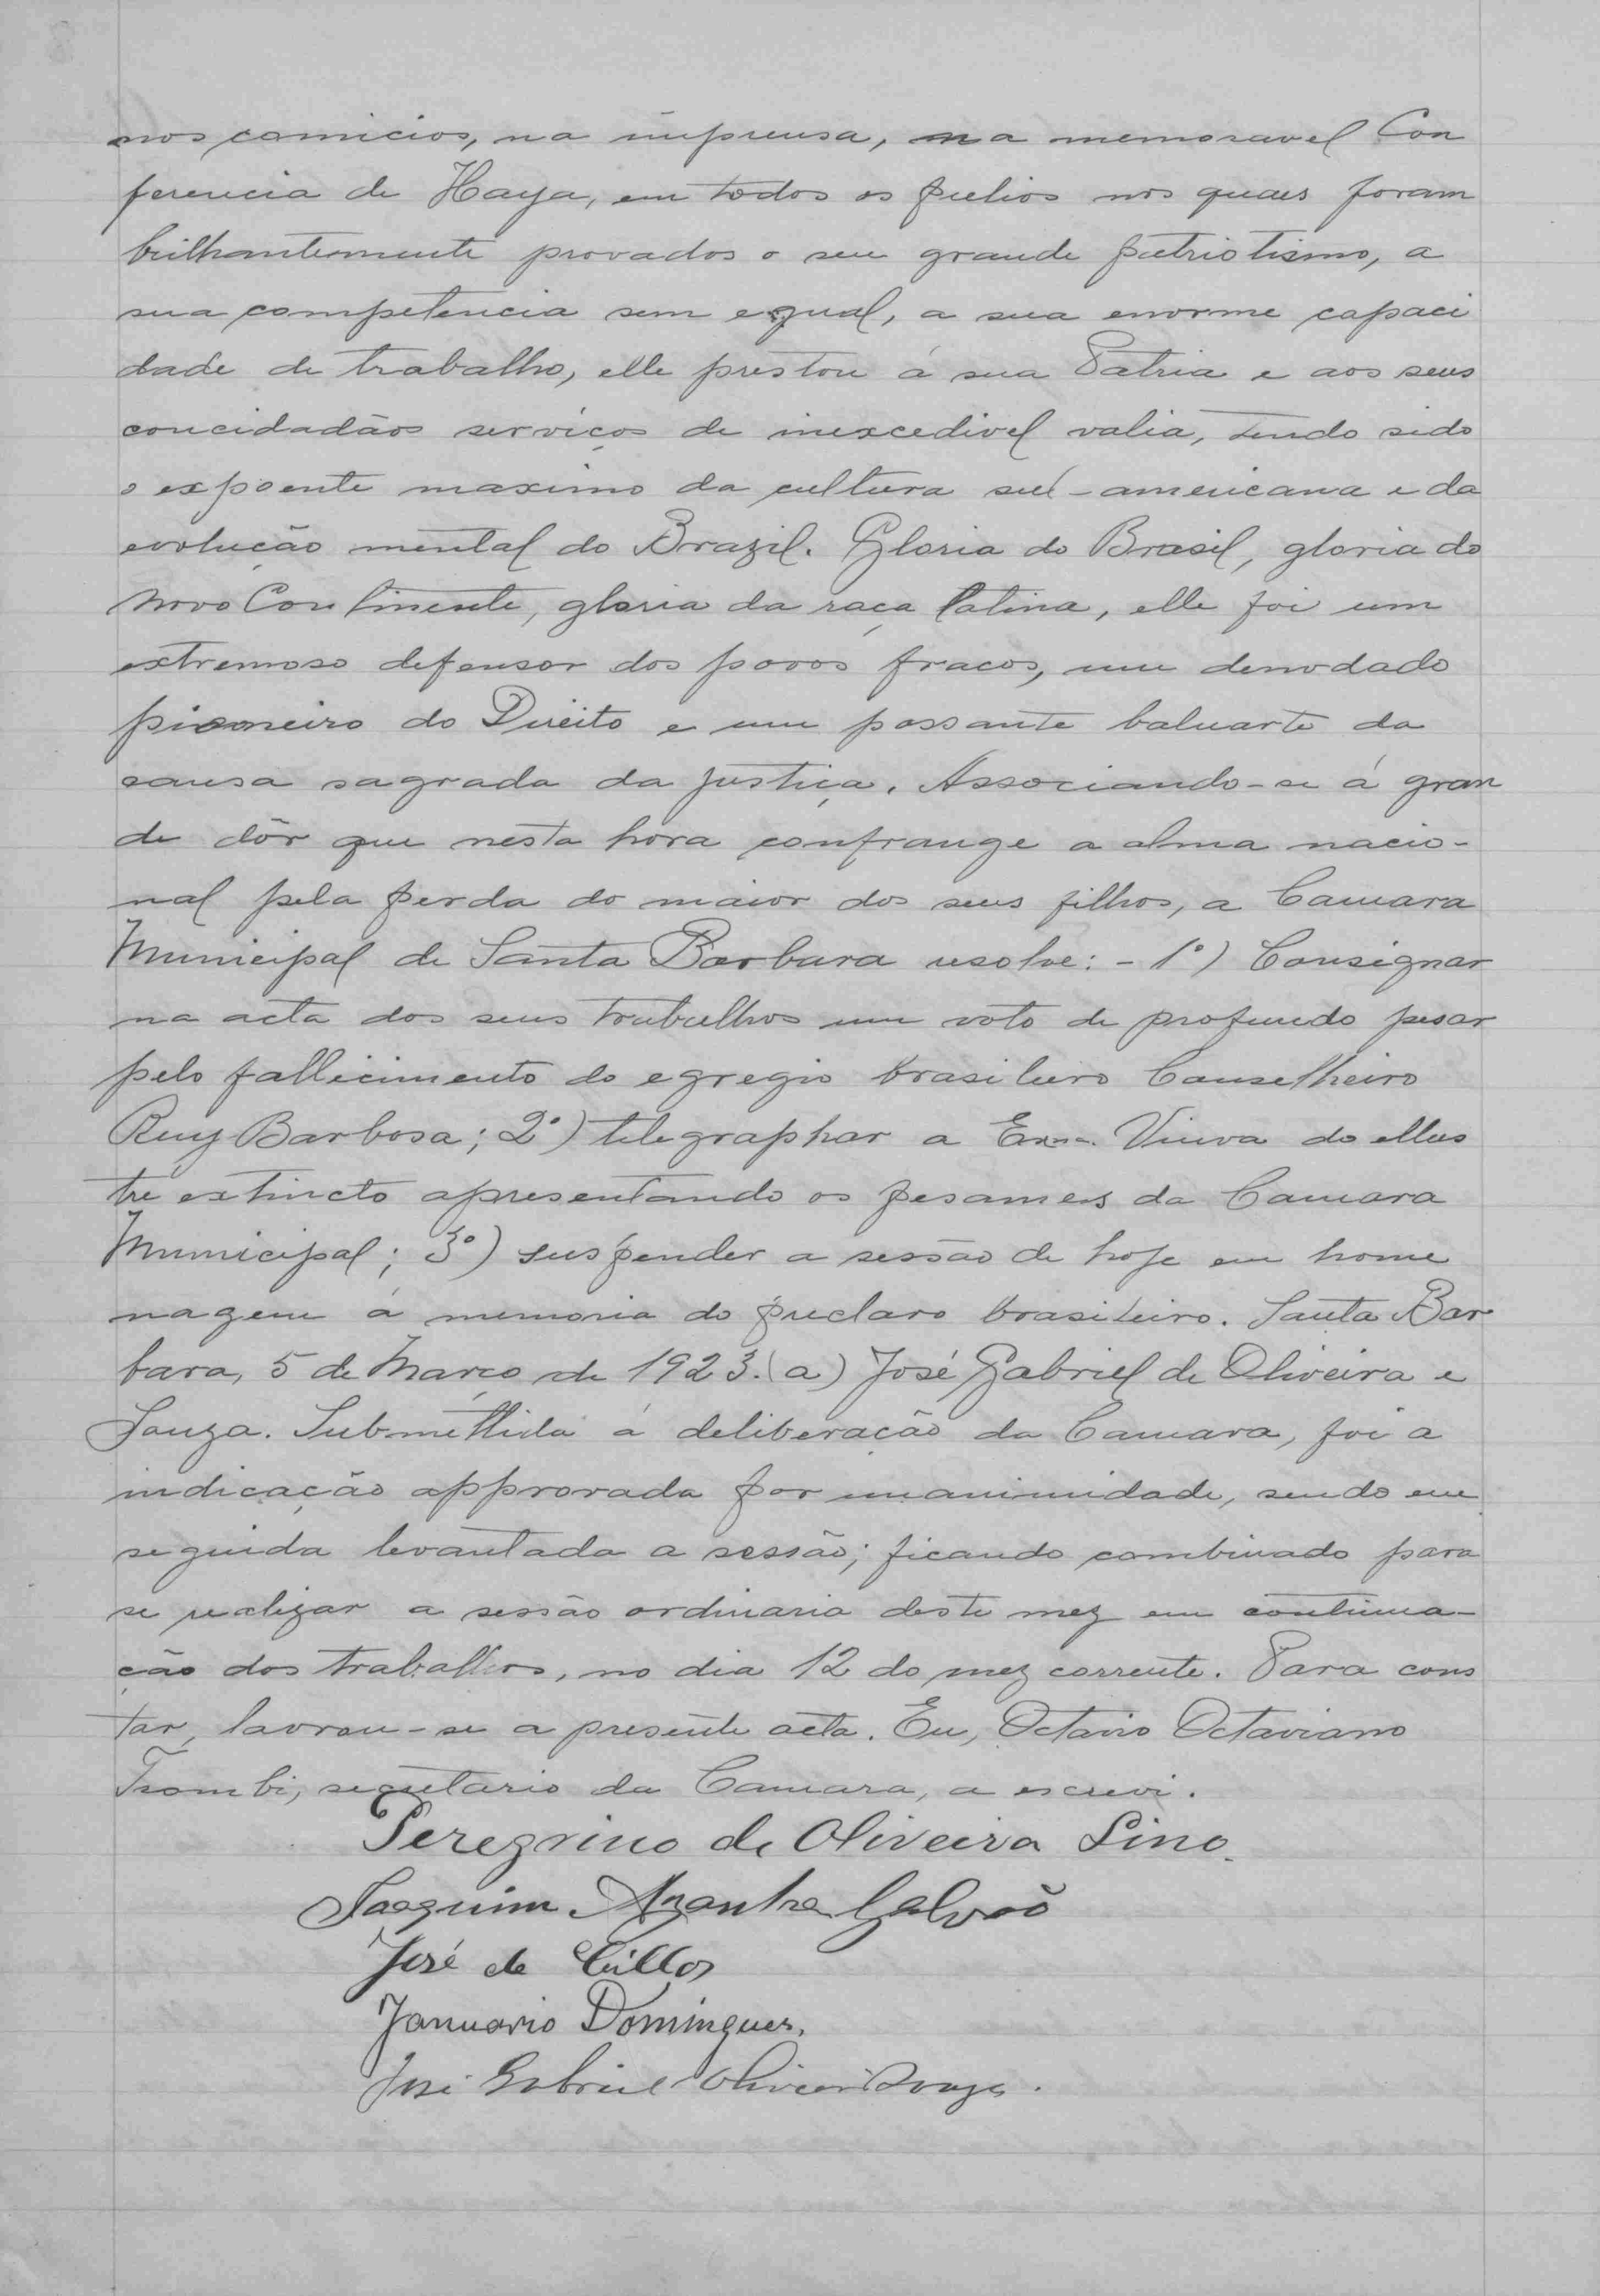 nos comicios, na imprensa, na memoravel Con
ferencia de Haya, em todos os prelios nos quaes foram
brilhantemente provados o seu grande patriotismo, a
sua competencia sem egual, a sua enorme capaci
dade de trabalho, elle prestou á sua Patria e aos seus
concidadãos serviços de inexcedivel valia, tendo sido
o expoente maximo da cultura sul-americana e da
evolução mental do Brazil. Gloria do Brasil, gloria do
Novo Continente, gloria da raça latina, elle foi um
extremoso defensor dos povos fracos, um denodado
pioneiro do Direito e um possante baluarte da
causa sagrada da justiça. Associando-se á gran
de dôr que nesta hora confrange a alma nacio-
nal pela perda do maior dos seus filhos, a Camara
Municipal de Santa Barbara resolve: - 1º) Consignar
na acta dos seus trabalhos um voto de profundo pesar
pelo fallecimento do egregio brasileiro Conselheiro
Ruy Barbosa; 2º) telegraphar a Exma. Viuva do illus
tre extincto apresentando os pesames da Camara
Municipal; 3º) suspender a sessão de hoje em home
nagem á memoria do preclaro brasileiro. Santa Bar
bara, 5 de Março de 1923. (a) José Gabriel de Oliveira e
Souza. Submettida á deliberação da Camara, foi a
indicação approvada por unanimidade, sendo em
seguida levantada a sessão; ficando combinado para
se realizar a sessão ordinaria deste mez em continua-
ção dos trabalhos, no dia 12 do mez corrente. Para cons
tar, lavrou-se a presente acta. Eu, Octavio Octaviano
Trombi, secretario da Camara, a escrevi.
Peregrino de Oliveira Lino.
Joaquim Azanha Galvão
José de Cillos
Januario Domingues.
José Gabriel Oliveira Souza.